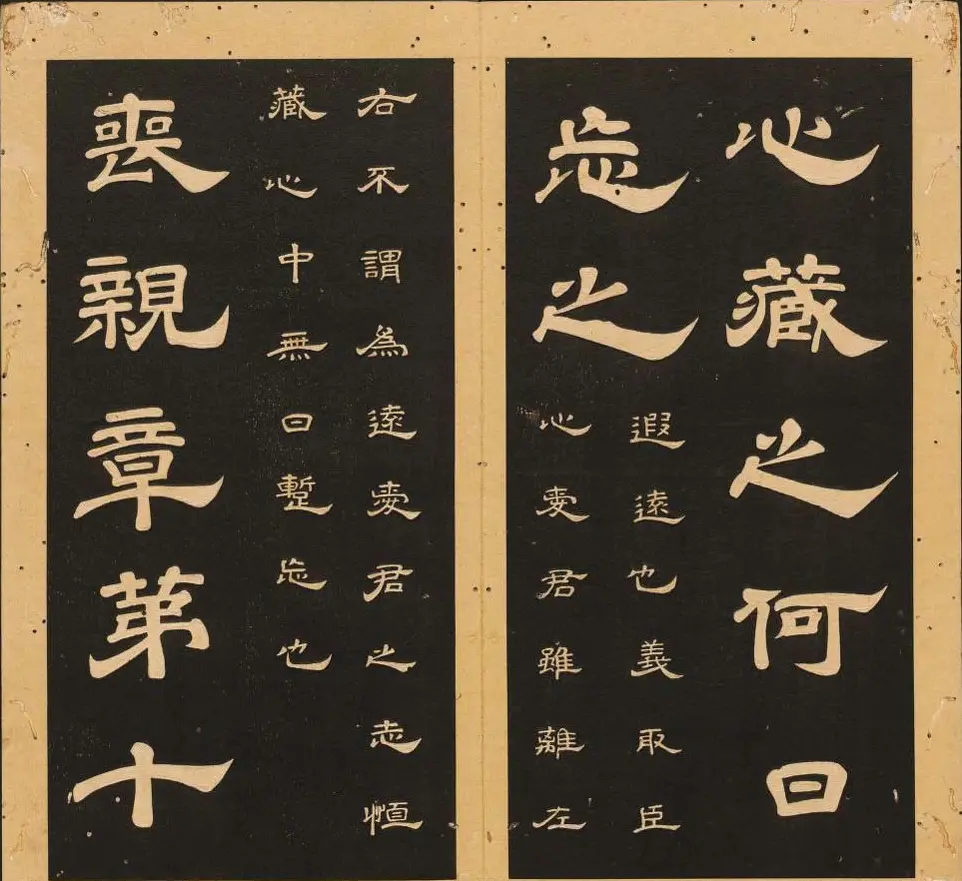 心藏之何日
忘之
遐遠也義取臣
心愛君雖離左
右不謂為遠愛君之志恒
藏心中無日蹔忘也
喪親章第十